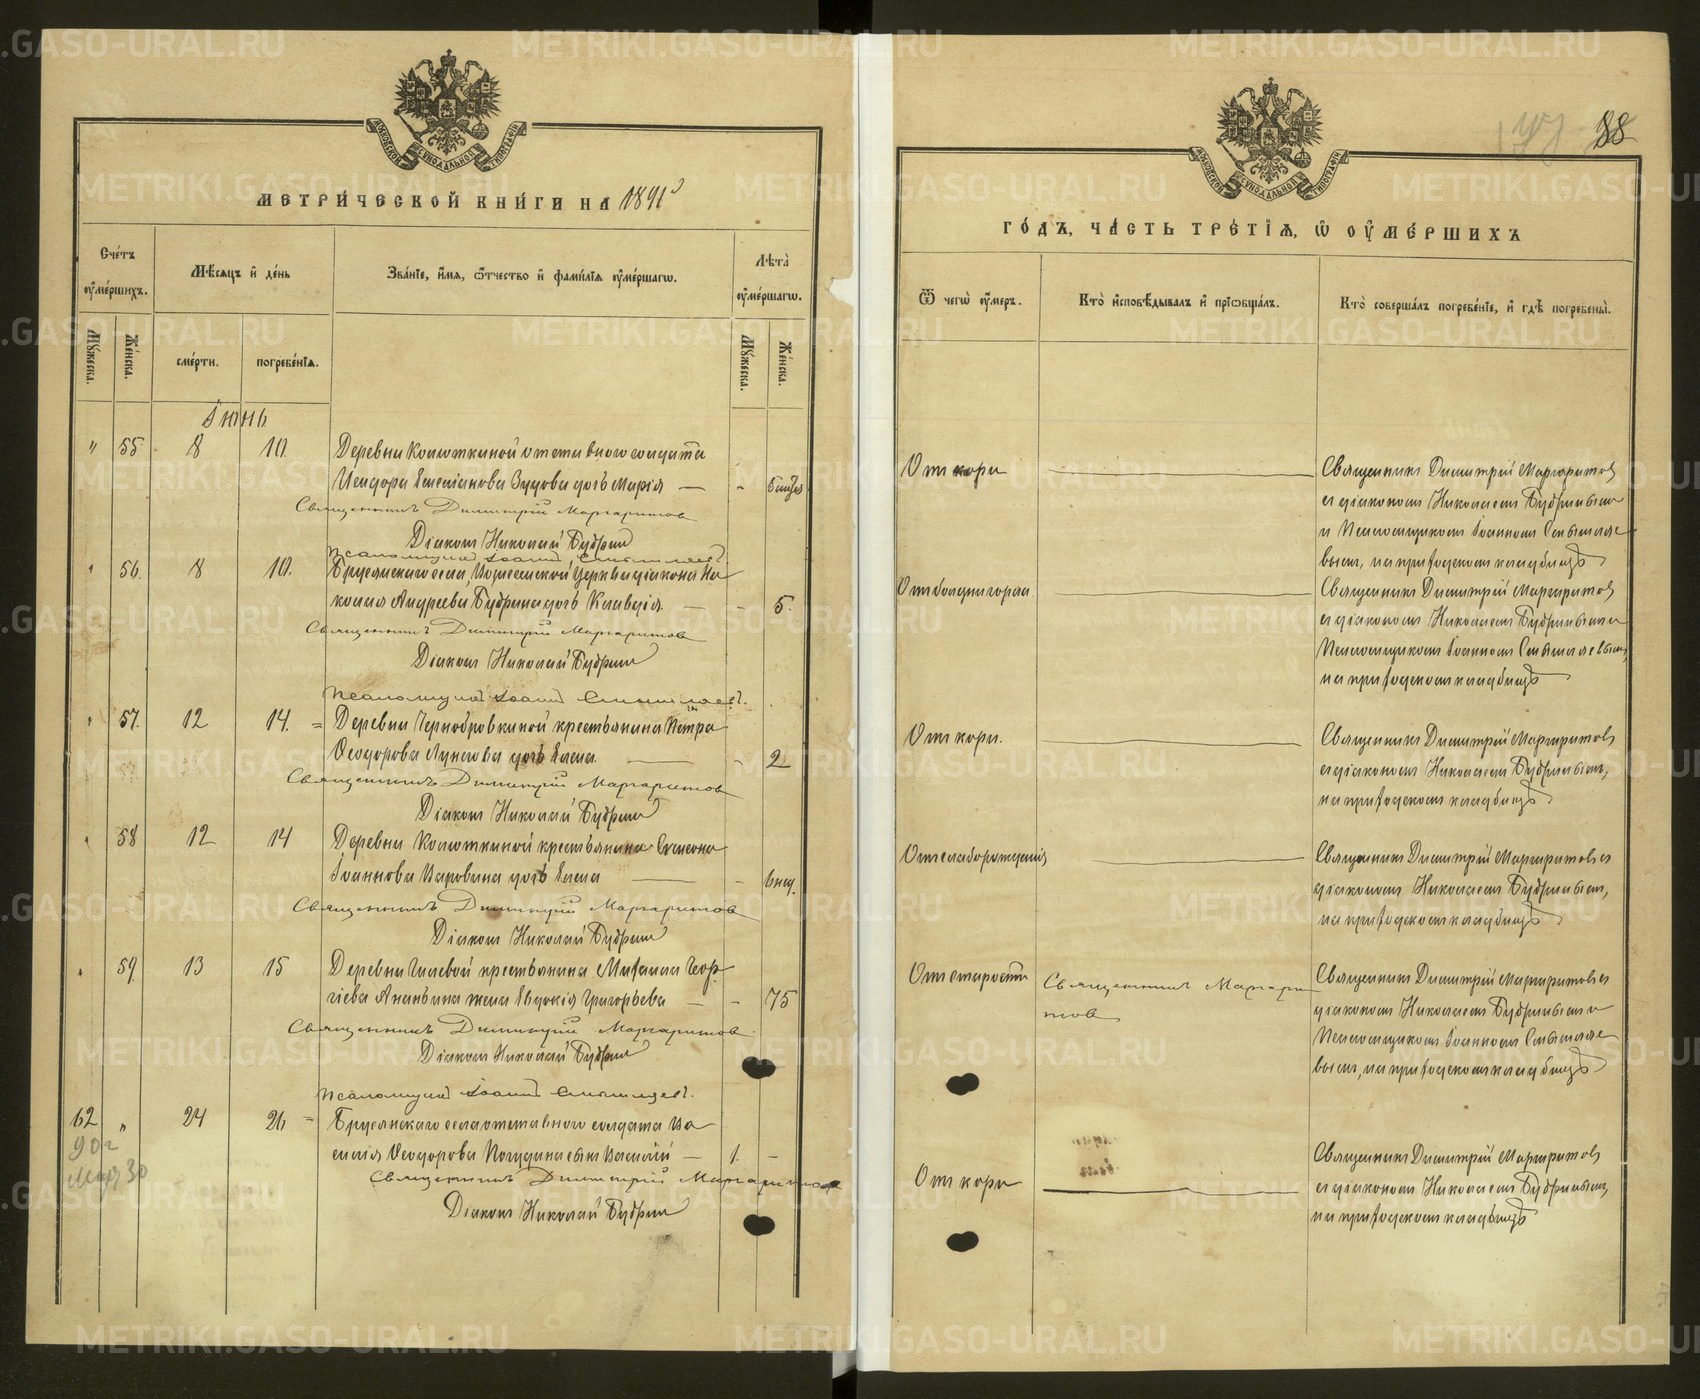 МЕТРИ́ЧЕСКОЙ КНИ́ГИ НА 1891
Сче́тъ ᲂу҆ме́ршихъ.
Мѣ́сѧцъ и҆ де́нь
Зва́нїе, и҆́мѧ, ѻ҆́тчество и҆ фами́лїѧ ᲂу҆ме́ршагѡ.
Лѣ́та ᲂу҆ме́ршагѡ.
Мꙋ́жеска.
Же́нска.
сме́рти.
погребе́нїѧ.
Мꙋ́жеска.
Же́нска.
Іюнь
" 55. 8 10. Деревни Колюткиной отставного солдата
Исидора Зудова дочь Марія — - 5 мѣся
Священникъ Димитрій Маргаритовъ
Діаконъ Николай Бубринъ
Псаломщикъ Іоаннъ
56. 8 10. Брусянскаго села, Вознесенской Церкви діакона Ни-
колая Андреева Бубрина дочь Клавдія. — - 5.
Священникъ Димитрій Маргаритовъ
Діаконъ Николай Бубринъ
Псаломщикъ Іоаннъ
57. 12 14. = Деревни Чернобровкиной крестьянина Петра
Ѳеодорова дочь Елена. — - 2
Священникъ Димитрій Маргаритовъ
Діаконъ Николай Бубринъ
58 12 14 Деревни Колюткиной крестьянина Симеона
Іоаннова дочь Елена — - 6 нед.
Священникъ Димитрій Маргаритовъ
Діаконъ Николай Бубринъ
59. 13 15 Деревни Гилевой крестьянина Михаила Геор-
гіева Ананьина жена Евдокія Григорьева — - 75
Священникъ Димитрій Маргаритовъ
Діаконъ Николай Бубринъ
Псаломщикъ Іоаннъ
62 " 24 26 = Брусянскаго села отставного солдата Ва-
силія Ѳеодорова сынъ Василій — 1. -
90 г
30
Священникъ Димитрій Маргаритовъ
Діаконъ Николай Бубринъ
88
ГО́ДЪ, ЧА́СТЬ ТРЕ́ТЇѦ, Ѡ҆ ОУ҆МЕ́РШИХЪ
Ѿ чегѡ̀ ᲂу҆́меръ.
Кто̀ и҆сповѣ́дывалъ и҆ прїѻбща́лъ.
Кто̀ соверша́лъ погребе́нїе, и҆ гдѣ̀ погребены̀.
Отъ кори — Священникъ Димитрій Маргаритовъ
съ діакономъ Николаемъ Бубринымъ
и Псаломщикомъ Іоанномъ
вымъ, на приходскомъ кладбищѣ
Отъ боли горла — Священникъ Димитрій Маргаритовъ
съ діакономъ Николаемъ Бубринымъ и
Псаломщикомъ Іоанномъ
на приходскомъ кладбищѣ
Отъ кори. — Священникъ Димитрій Маргаритовъ
съ діакономъ Николаемъ Бубринымъ,
на приходскомъ кладбищѣ
Отъ слаборожденія — Священникъ Димитрій Маргаритовъ съ
діакономъ Николаемъ Бубринымъ,
на приходскомъ кладбищѣ
Отъ старости Священникъ Маргари-
товъ
Священникъ Димитрій Маргаритовъ съ
діакономъ Николаемъ Бубринымъ и
Псаломщикомъ Іоанномъ
вымъ, на приходскомъ кладбищѣ
Отъ кори — Священникъ Димитрій Маргаритовъ
съ діакономъ Николаемъ Бубринымъ,
на приходскомъ кладбищѣ
METRIKI.GASO-URAL.RU